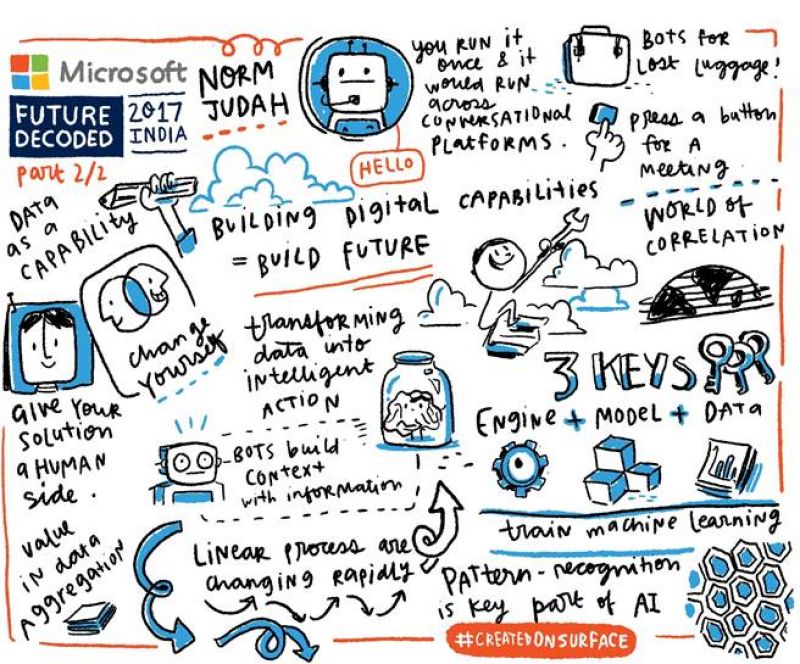 Microsoft
FUTURE
DECODED
2017
INDIA
part 2/2
NORM
JUDAH
HELLO
you run it
once & it
would run
across
conversational
platforms.
Bots for
lost luggage!
press a button
for a
meeting
Data
as a
capability
Building Digital capabilities
= Build future
World of
correlation
change
yourself
transforming
data into
intelligent
action
3 KEYS
Engine + Model + Data
train machine learning
Give your
solution
a human
side.
Bots build
context
with information
value
in data
aggregation
Linear process are
changing rapidly
Pattern-recognition
is key part of AI
#CREATEDONSURFACE